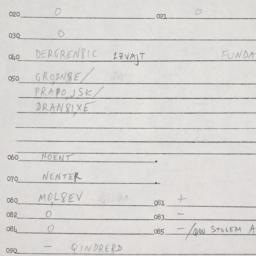 020 0 021 0
030 0
040 DERGRENSIC LZVAJT FUNDA
050 GRODNSE/
PRAPOJSK/
DRANSIXE
060 NOENT
070 NENTER
080 MOLSEV 081 +
082 0 083 -
084 0 085 -/NON STOLEM A
090 - QINDRERD